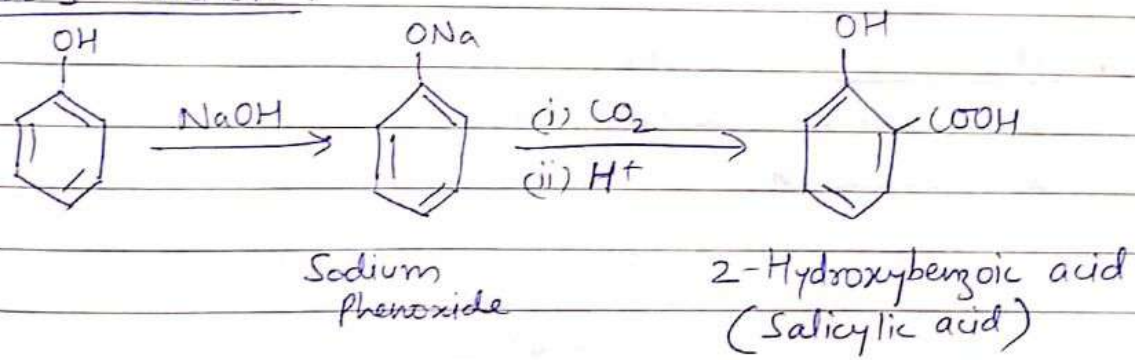 OH
ONa
OH
NaOH
(i) CO2
(ii) H+
COOH
Sodium
Phenoxide
2-Hydroxybenzoic acid
(Salicylic acid)